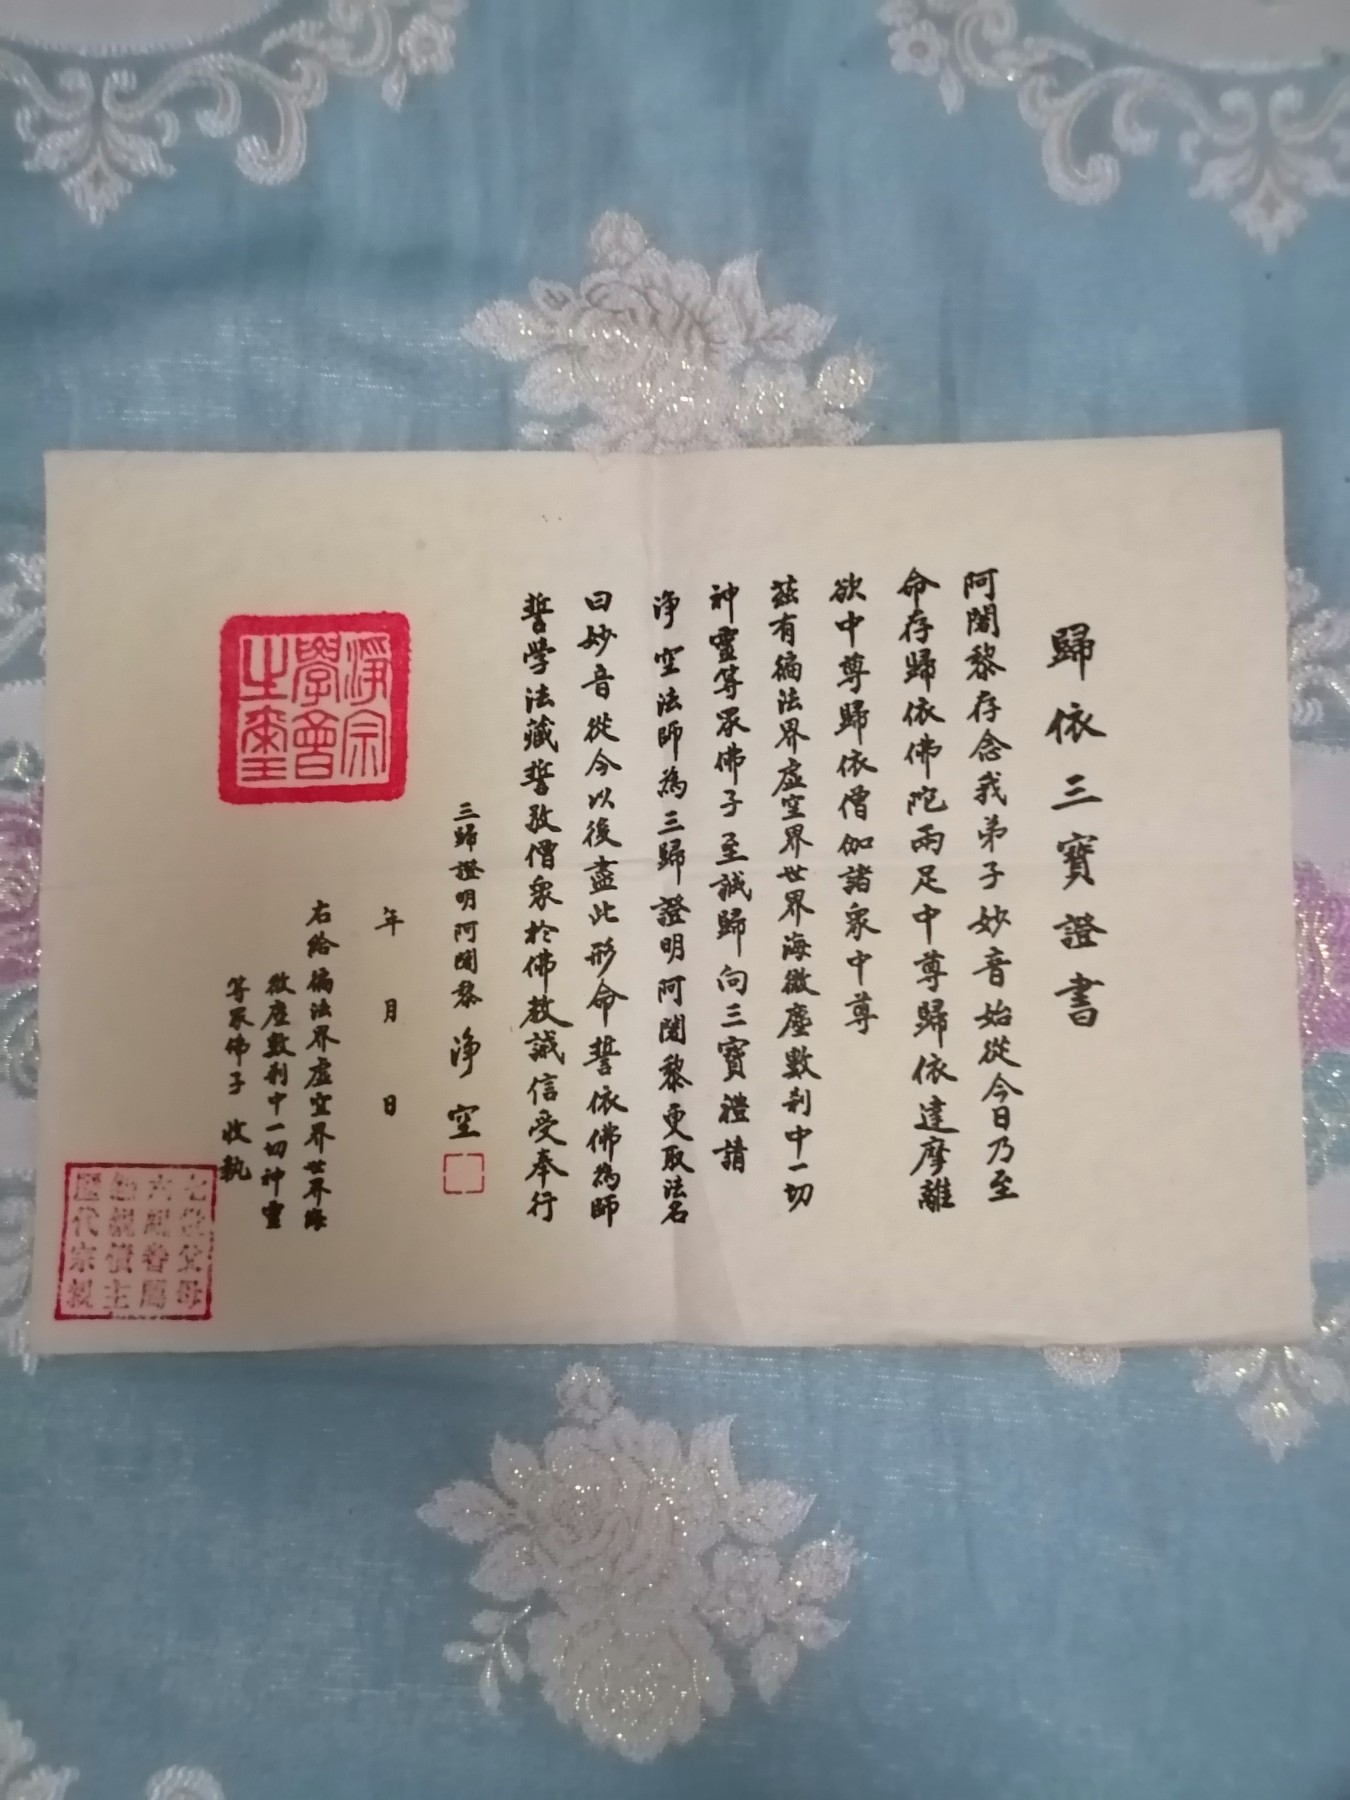 歸依三寶證書
阿闍黎存念我弟子妙音始從今日乃至
命存歸依佛陀兩足中尊歸依達摩離
欲中尊歸依僧伽諸衆中尊
茲有徧法界虛空界世界海微塵數剎中一切
神靈等眾佛子至誠歸向三寶禮請
淨空法師為三歸證明阿闍黎更取法名
曰妙音從今以後盡此形命誓依佛為師
誓學法藏誓敬僧衆於佛教誠信受奉行
三歸證明阿闍黎 淨空
年 月 日
右給徧法界虛空界世界海
微塵數剎中一切神靈
等眾佛子 收執
淨宗
學會
之璽
父母
六親眷屬
親債主
歷代宗親